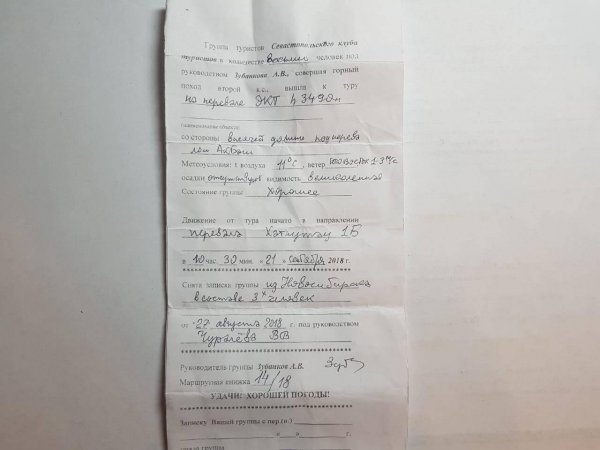 Группа туристов Севастопольского клуба
туристов в количестве восьми человек под
руководством Зубанкова А.В., совершая горный
поход второй к.с., вышла к туру
на перевале ЭКТ h 3490м
(наименование объекта)
со стороны висячей долины под перева
лом АкБаш
Метеоусловия: t воздуха 11°С, ветер 1-3 м/с
осадки отсутствуют видимость великолепная
Состояние группы хорошее
Движение от тура начато в направлении
перевала 1Б
в 10 час. 30 мин. «21» сентября 2018 г.
************************************
Снята записка группы из Новосибирска
в составе 3х человек
от "27 августа 2018 г. под руководством
В В
************************************
Руководитель группы Зубанков А.В.
Маршрутная книжка 14/18
УДАЧИ! ХОРОШЕЙ ПОГОДЫ!
************************************
Записку Вашей группы с пер.(в.)
«___»